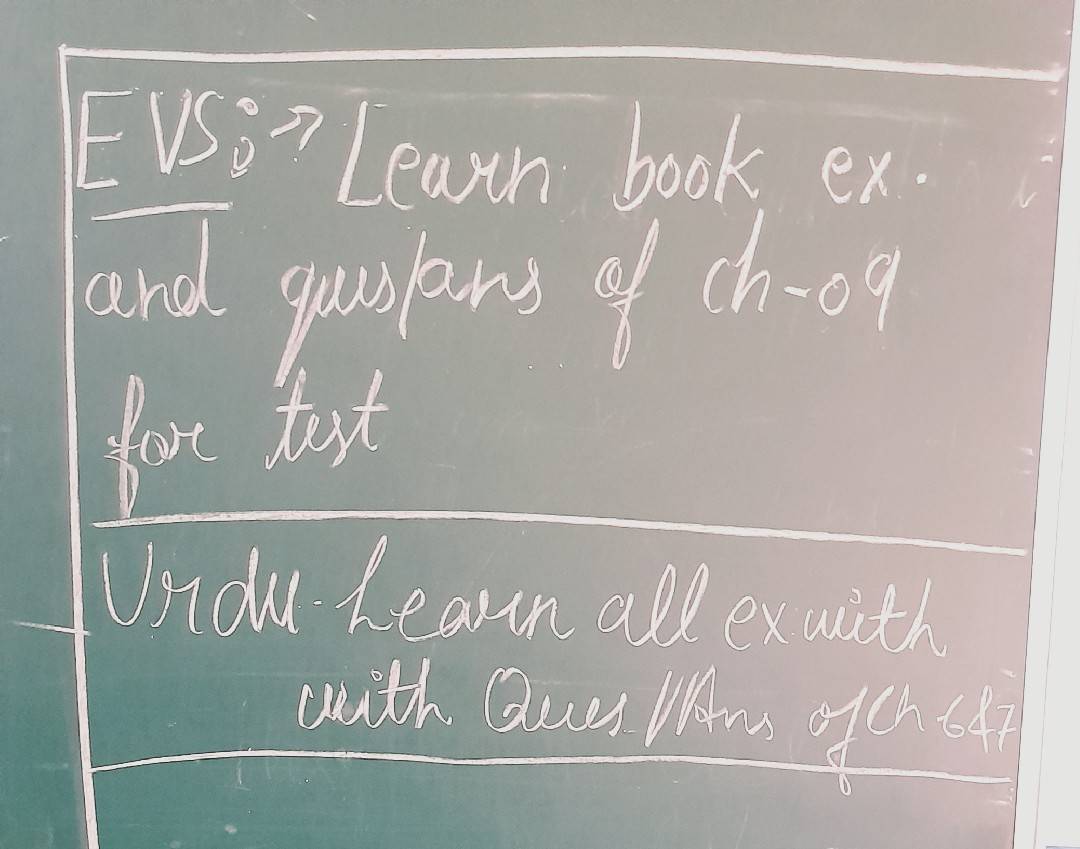 EVS:→ Learn book ex.
and ques/ans of ch-09
for test
Urdu-Learn all ex.with
with Ques//Ans of Ch 6&7